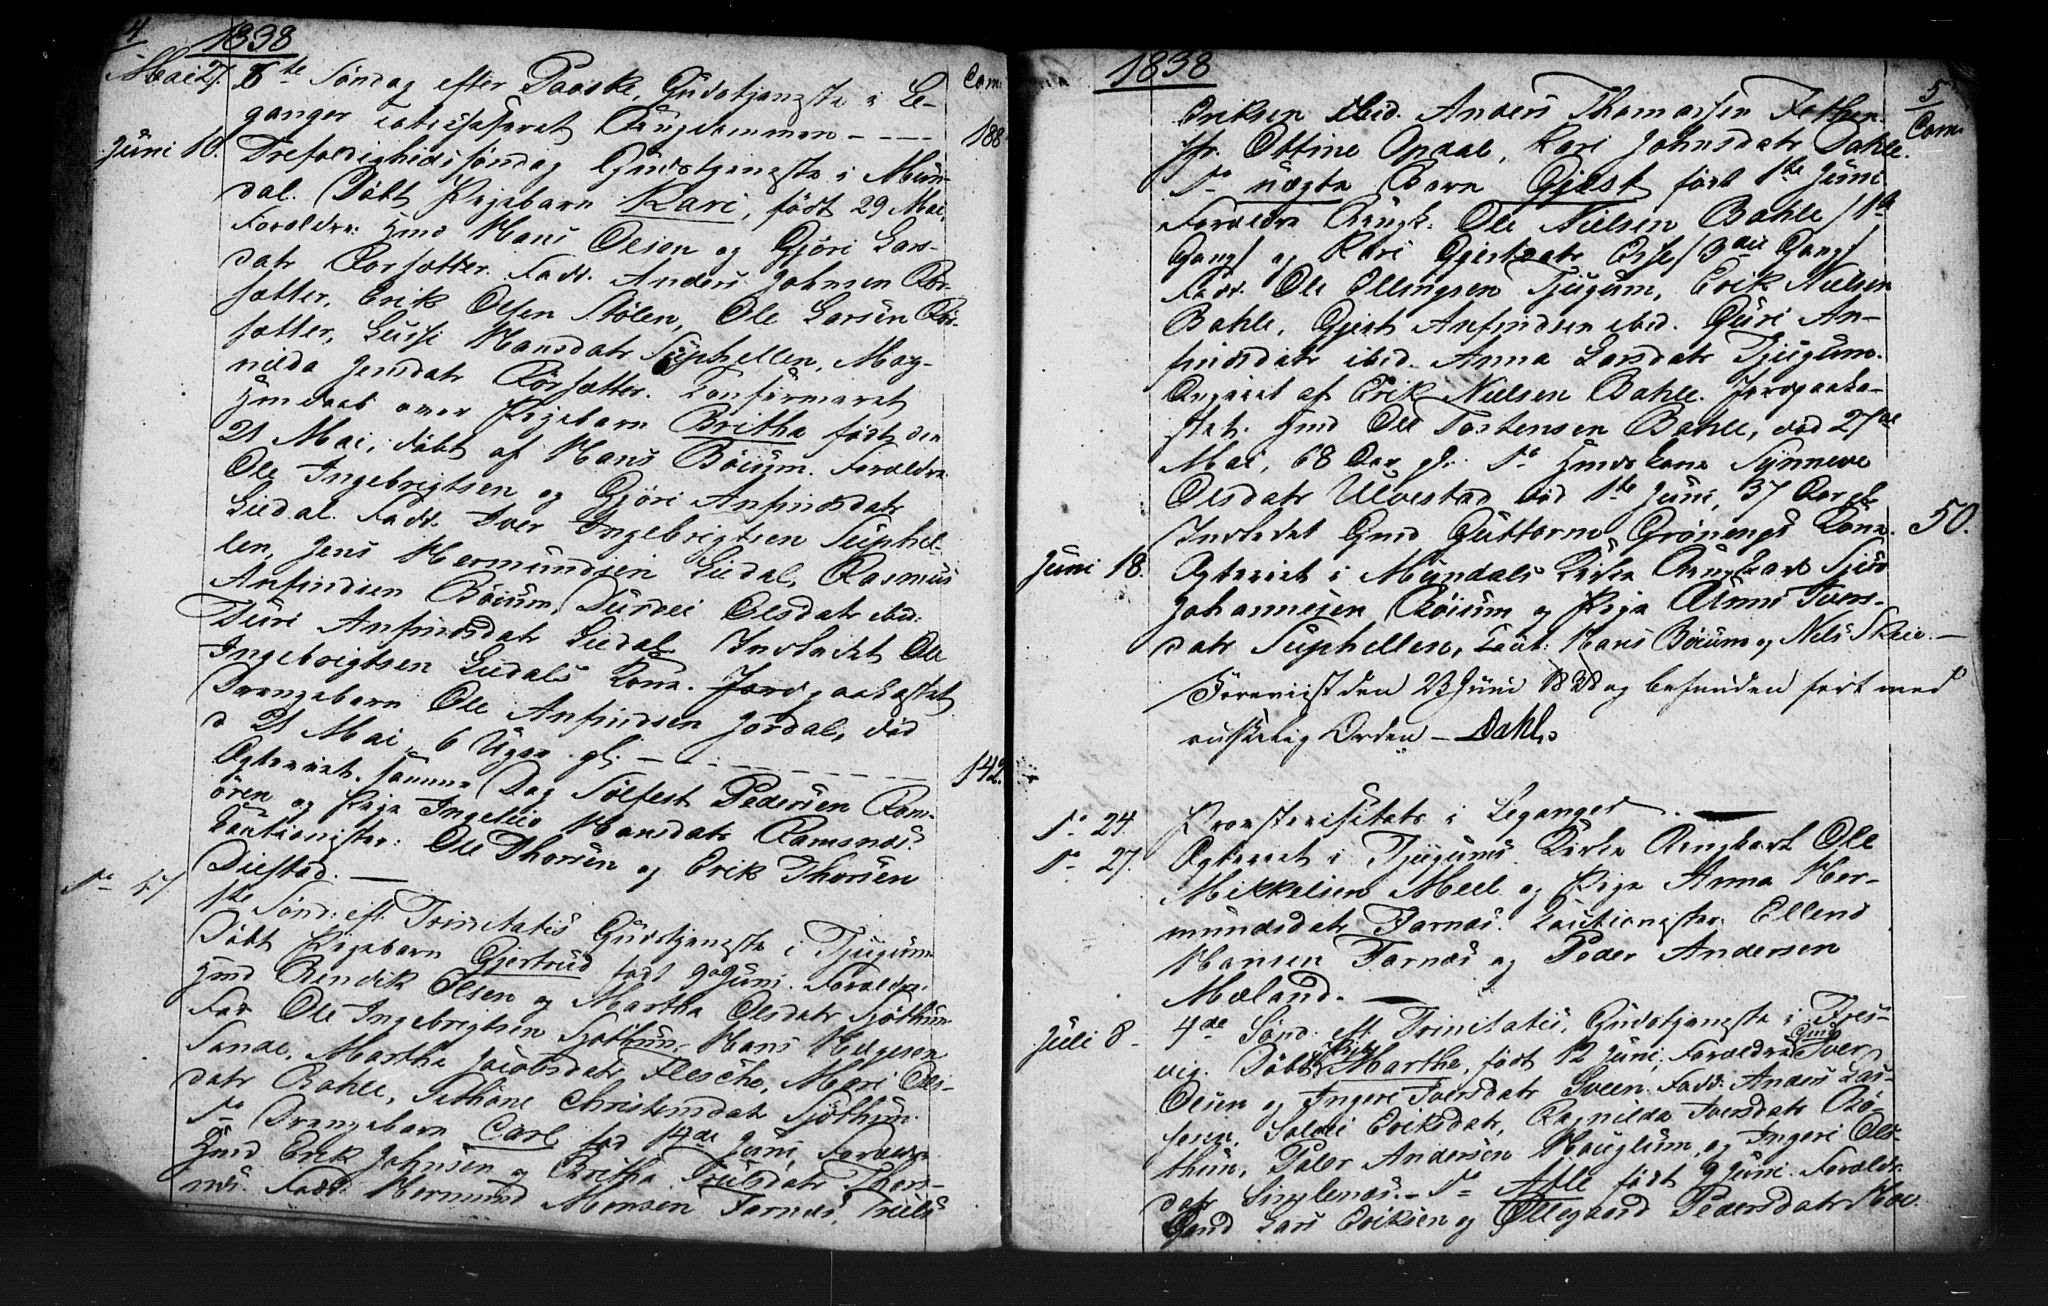 4
1838
Mai 27. 6te Søndag efter Paaske, Gudstjeneste i Le- Com:
ganger Catechiseret Ungdommen — — — 188
Juni 10. Trefoldighedssøndag Gudstjeneste i Mun-
dal. Døbt Pigebarn Kari, født 29 Mai,
Forældre: Hmd Hans Olsen og Gjøri Lars-
datr Børsætter. Fadd. Anders Johnsen Bør-
sætter, Erik Olsen Stølen, Ole Larsen Bør-
sætter, Hansdatr Suphellen, Mag-
nilda Jensdatr Børsætter. Confirmeret
Hmdaab over Pigebarn Britha født den
21 Mai, døbt af Hans Bøium. Forældre
Ole Ingebrigtsen og Gjøri Anfindsdatr
Liedal. Fadd. Iver Ingebrigtsen Suphel-
len, Jens Hermundsen Liedal, Rasmus
Anfindsen Bøium, Durdei Olsdatr ibid.
Guri Anfindsdatr Liedal. Indledet Ole
Ingebrigtsen Liedals Kone. Jordpaakastet
Drengebarn Ole Anfindsen Jordal, død
d 21 Mai, 6 Uger gl. — — — 142.
Ægteviet samme Dag Sølfest Pedersen Ram-
ören og Pige Ingelev Hansdatr Ramsnæs
Cautionister: Ole Thorsen og Erik Thorsen
Diestad. —
Do 17 1te Sønd: eft. Trinitatis Gudstjeneste i Tjugum
Døbt Pigebarn Gjertrud født 9de Juni. Forældre
Hmd Bendik Olsen og Martha Olsdatr Sjøthun
Fad Ole Ingebrigtsen Sjøthun, Hans Helgesen
Sande, Martha Jacobsdatr Flesche, Mari Ols-
datr Bahle, Sithone Christensdatr Sjøthun.
Do Drengebarn Carl fød 14de Juni Forældre
Hmd Erik Johnsen og Britha Trulsdatr Thor-
næs. Fadd. Hermund Monsen Farnæs, Truls
1838
5
Eriksen ibid. Anders Thomassen Fathen. Com:
Jfr. Ottine Opdal, Kari Johnsdatr Dahle.
Do uægte Barn Gjest født 1te Juni
Forældre Ungk. Ole Nielsen Bahle /1te
Gang/ og Kari Gjestsdatr Esse /3die Gang/
Fadd. Ole Ellingsen Tjugum, Erik Nielsen
Bahle, Gjest Anfindsen ibid. Guri An-
findsdatr ibid. Anna Larsdatr Tjugum.
Angivet af Erik Nielsen Bahle. Jordpaaka-
stet. Hmd Ole Tostensen Bahle, død 27de
Mai, 68 Aar gl. Do Hmds Kone Synneve
Olsdatr Ulvestad død 1te Juni, 37 Aar gl.
Indledet Hmd Guttorm Grønengs Kone. 50.
Juni 18. Ægteviet i Mundals Kirke Ungkarl Sjur
Johannesen Bøium og Pige Anni Ivers-
datr Suphellen, Caut: Hans Bøium og Nels Skeie. —
Foreviist den 23 Juni 1838 og befunden fort med
tilbørlig Orden — Dahl.
Do 24. Provstevisitats i Leganger. —
Do 27. Ægteviet i Tjugums Kirke Ungkarl Ole
Mikkelsen Meel og Pige Anna Her-
mundsdatr Farnæs. Cautionister: Ellend
Hansen Farnæs og Peder Andersen
Mæland. —
Juli 8. 4de Sønd: eft. Trinitatis, Gudstjeneste i Fres-
vig. Døbt Pige Marthe, født 12 Juni, Forældre Hmd Iver
Olsen og Ingeri Iversdatr Sveen. Fadd. Anders Las-
sesen, Solvei Eriksdatr, Ragnilda Iversdatr Bø-
thun, Peder Andersen Houglum, og Ingeri Ols-
datr Simlenæs. — Do Atle født 9 Juni. Forældr.
Hmd Lars Eriksen og Øllegaard Pedersdatr Hov.